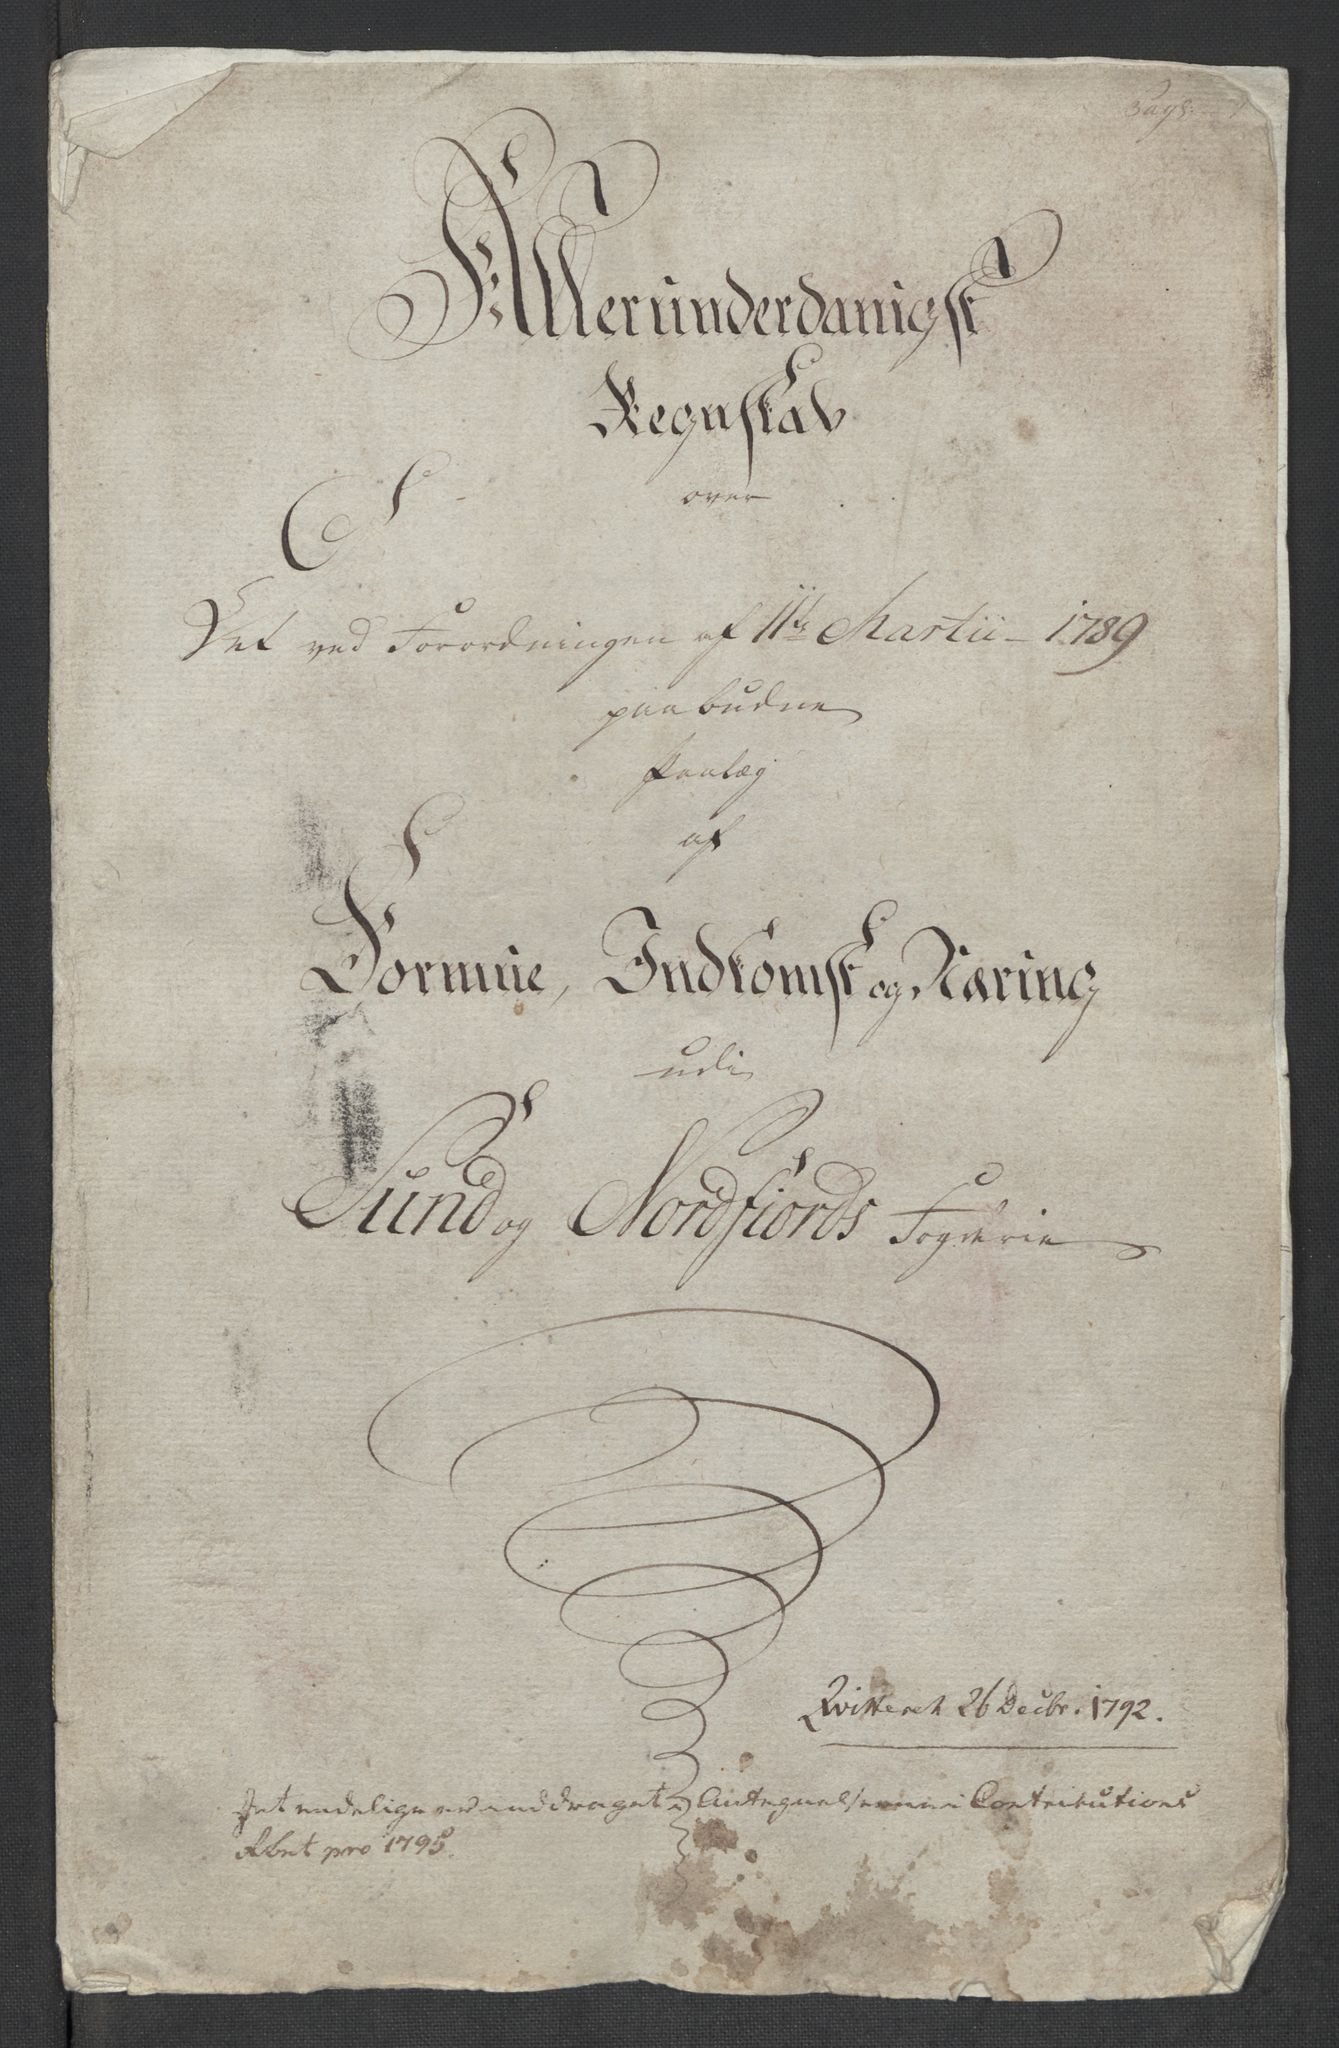 Allerunderdanigst
Regnskab
over
Det ved Forordningen af 11te Martii 1789
paabudne
Paalæg
af
Formue, Indkomst og Næring
udi
Sund og Nordfiords Fogderie
Qvitteret 26 Decbr. 1792.
Det endelige er inddraget i Antegnelserne i Contributions
Rbet pro 1795.